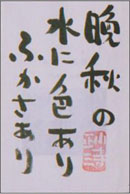 晩秋の
水に色あり
ふかさあり